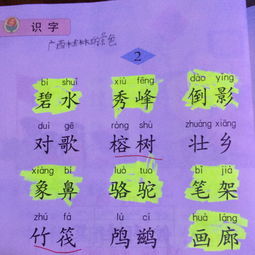 识字
广西桂林的景色
2
bì shuǐ xiù fēng dào yǐng
碧水 秀峰 倒影
duì gē róng shù zhuàng xiāng
对歌 榕树 壮乡
xiàng bí luò tuo bǐ jià
象鼻 骆驼 笔架
zhú fá lú cí huà láng
竹筏 鸬鹚 画廊